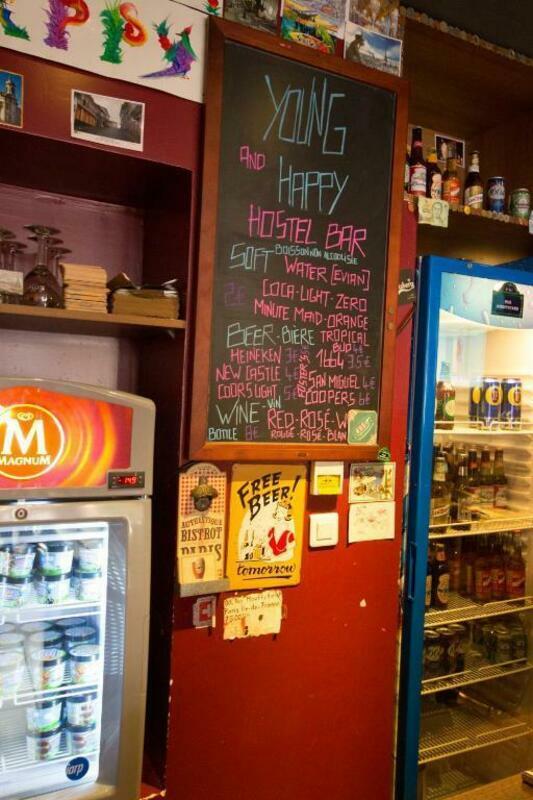 YOUNG
AND
HAPPY
HOSTEL BAR
SOFT BOISSON NON ALCOOLISÉE
WATER [EVIAN]
2€ COCA-LIGHT-ZERO
MINUTE MAID-ORANGE
TROPICAL
BEER-BIÈRE
BUD 4€
HEINEKEN 3€
1664 3.5€
NEW CASTLE 4€
FOSTERS
SAN MIGUEL 4€
COORS LIGHT
COOPERS 6€
WINE-VIN RED-ROSÉ-W
BOTTLE 8€ ROUGE-ROSÉ-BLAN
M
MAGNUM
-14.9
AUTHENTIQUE
BISTROT
PARIS
FREE
BEER!
tomorrow